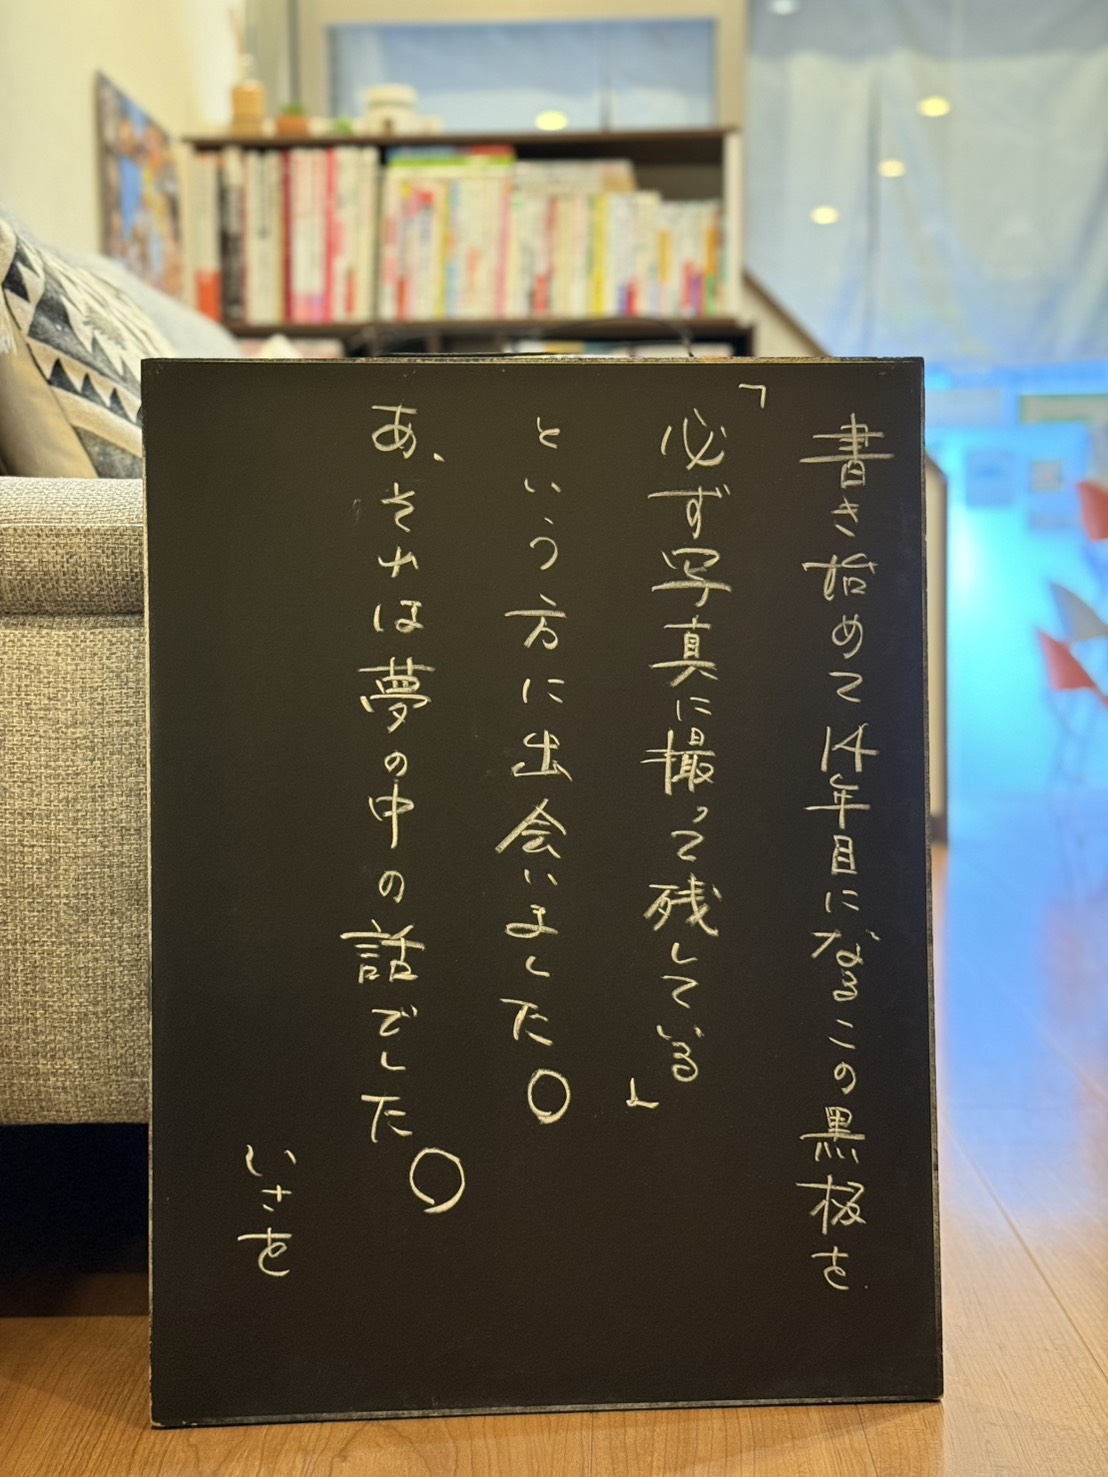 書き始めて14年目になるこの黒板を
「必ず写真に撮って残している」
という方に出会いました。
あ、それは夢の中の話でした。
いさを